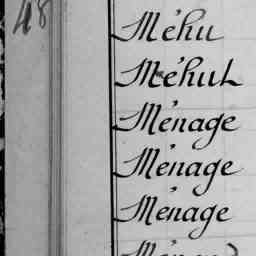 48
Méhu
Méhul
Ménage
Ménage
Ménage